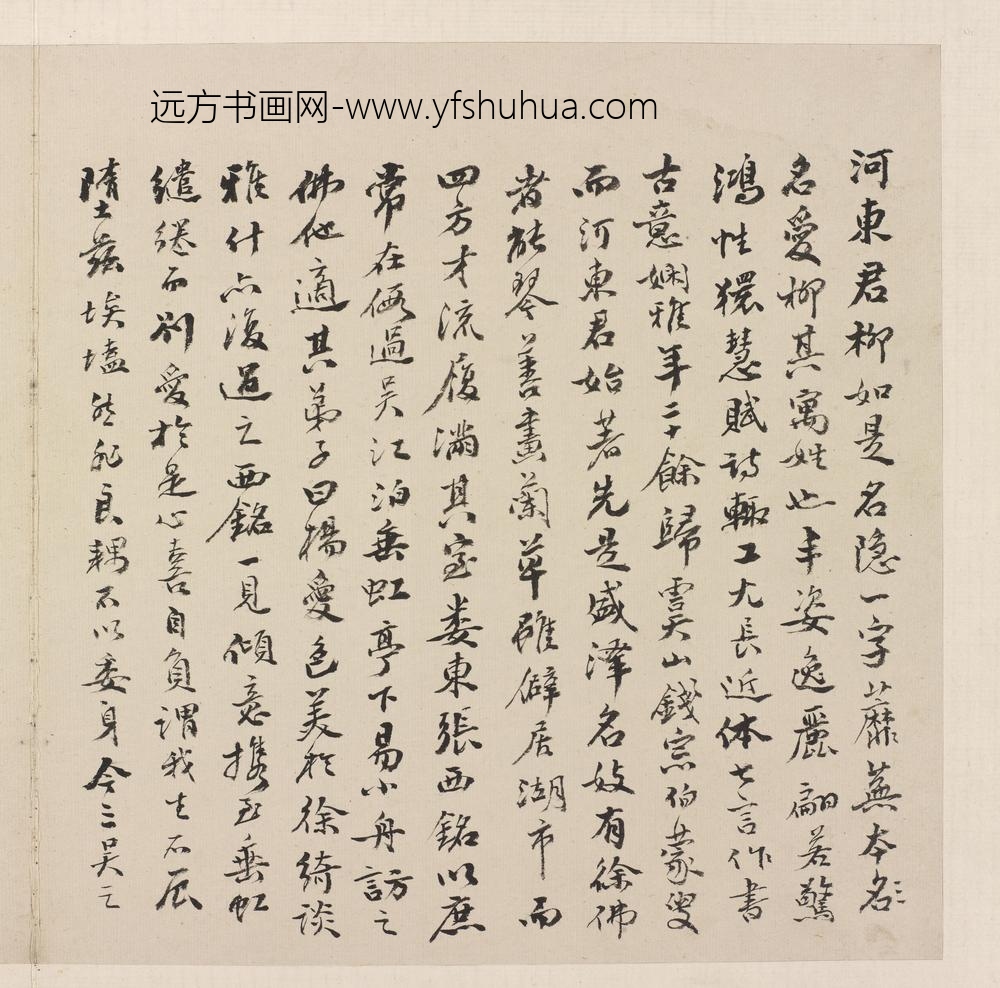 远方书画网-www.yfshuhua.com
河東君柳如是名隐一字蘼蕪本名〻
名愛柳其寓姓也丰姿逸麗翩若驚
鴻性獧慧賦詩輒工尤長近体七言作書
古意嫻雅年二十餘歸虞山錢宗伯蒙叟
而河東君始著先是盛澤名妓有徐佛
者能琴善畫蘭草雖僻居湖市而
四方才流履满其室婁東張西銘以庶
常在假過吴江泊垂虹亭下易小舟訪之
佛他適其弟子曰楊愛色美於徐綺談
雅什亦復過之西銘一見傾意携至垂虹
繾綣而别愛於是心喜自負謂我生不辰
墮兹埃壒然非良耦不以委身今三吴之